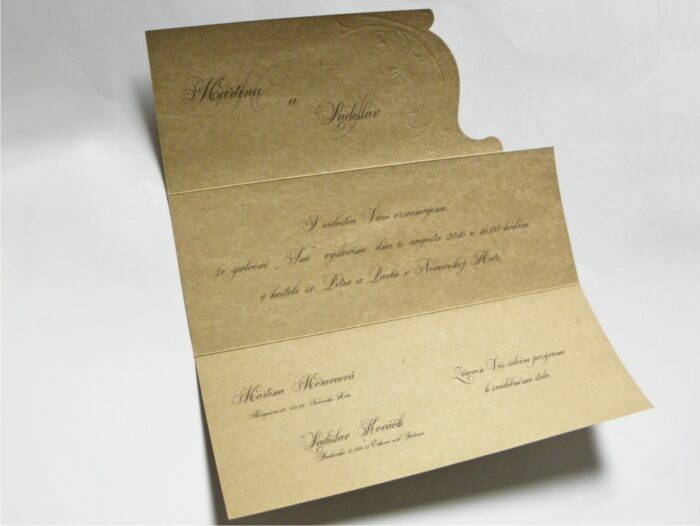 Martina
a
Ladislav
S radosťou Vám oznamujeme,
že spoločné „Áno“ vyslovíme dňa 6. augusta 2016 o 16.00 hodine
v kostole sv. Petra a Pavla v
Martina Moravcová
Zároveň Vás srdečne pozývam
k svadobnému stolu.
Ladislav Kováčik